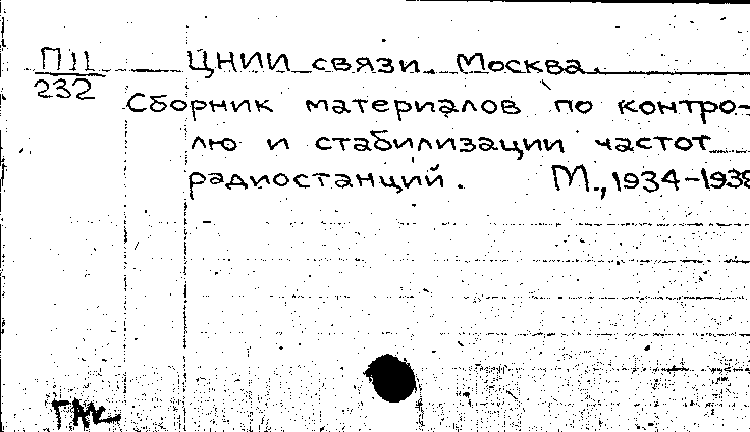 П11 ЦНИИ связи. Москва.
232
Сборник материалов по контро-
лю и стабилизации частот
радиостанций. М., 1934-1938